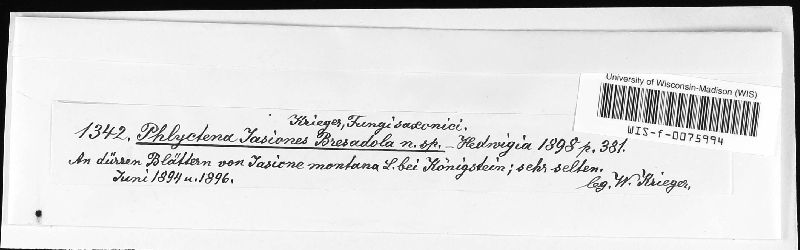 University of Wisconsin-Madison (WIS)
WIS-f-0075994
Krieger, Fungi saxonici.
1342. Phlyctena Jasiones Bresadola n. sp. – Hedwigia 1898 p. 381.
An dürren Blättern von Jasione montana L. bei Königstein; sehr selten.
Juni 1894 u. 1896.
leg. W. Krieger.